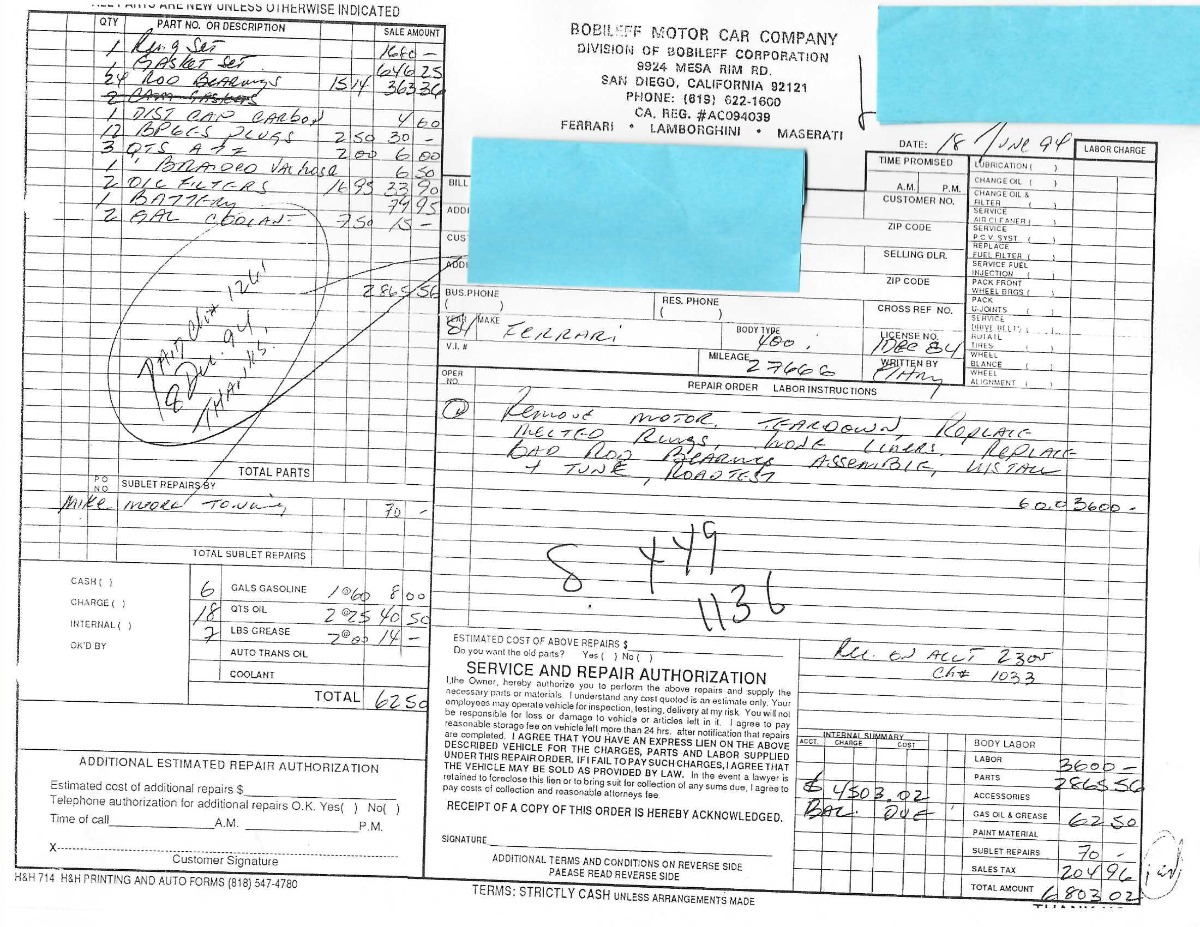 ALL PARTS ARE NEW UNLESS OTHERWISE INDICATED
QTY PART NO. OR DESCRIPTION SALE AMOUNT
1 Ring Set 1680 -
1 GASKET SET 646 25
24 ROD BEARINGS 15 14 363 36
2 CAM GASKETS
1 DIST CAP CARBON 4 60
12 BP6ES PLUGS 2 50 30 -
3 QTS ATF 2 00 6 00
1 BRAIDED 6 50
2 OIL FILTERS 16 95 33 90
1 BATTERY 79 95
2 GAL COOLANT 7 50 15 -
2865 56
PAID CH# 1261
8 Dec. 94
THANKS.
TOTAL PARTS
PO NO SUBLET REPAIRS BY
Mike Moore Towing 70 -
TOTAL SUBLET REPAIRS
CASH ( )
CHARGE ( )
INTERNAL ( )
OK'D BY
6 GALS GASOLINE 1@60 8 00
18 QTS OIL 2@25 40 50
7 LBS GREASE 2@00 14 -
AUTO TRANS OIL
COOLANT
TOTAL 62 50
ADDITIONAL ESTIMATED REPAIR AUTHORIZATION
Estimated cost of additional repairs $
Telephone authorization for additional repairs O.K. Yes( ) No( )
Time of call A.M. P.M.
X
Customer Signature
H&H 714 H&H PRINTING AND AUTO FORMS (818) 547-4780
BOBILEFF MOTOR CAR COMPANY
DIVISION OF BOBILEFF CORPORATION
9924 MESA RIM RD.
SAN DIEGO, CALIFORNIA 92121
PHONE: (619) 622-1600
CA. REG. #AC094039
FERRARI • LAMBORGHINI • MASERATI
DATE: 18 June 94
BILL
ADD
CUST
ADD
TIME PROMISED
A.M. P.M.
CUSTOMER NO.
ZIP CODE
SELLING DLR.
ZIP CODE
BUS. PHONE ( )
RES. PHONE ( )
CROSS REF NO.
YEAR 81 MAKE FERRARI
BODY TYPE 400i
LICENSE NO. 1DEC 84
V.I. #
MILEAGE 27666
WRITTEN BY
LABOR CHARGE
LUBRICATION ( )
CHANGE OIL ( )
CHANGE OIL & FILTER ( )
SERVICE AIR CLEANER ( )
SERVICE P.C.V SYST. ( )
REPLACE FUEL FILTER ( )
SERVICE FUEL INJECTION ( )
PACK FRONT WHEEL BRGS ( )
PACK
SERVICE DRIVE BELTS ( )
ROTATE TIRES ( )
WHEEL BLANCE ( )
WHEEL ALIGNMENT ( )
OPER NO. REPAIR ORDER LABOR INSTRUCTIONS
Remove MOTOR, TEARDOWN, REPLACE
MELTED Rings, HONE LINERS. REPLACE
BAD ROD BEARINGS ASSEMBLE, INSTALL
+ TUNE, ROADTEST
60.0 3600 -
8 449
1136
ESTIMATED COST OF ABOVE REPAIRS $
Do you want the old parts? Yes ( ) No ( )
SERVICE AND REPAIR AUTHORIZATION
I,the Owner, hereby authorize you to perform the above repairs and supply the
necessary parts or materials. I understand any cost quoted is an estimate only. Your
employees may operate vehicle for inspection, testing, delivery at my risk. You will not
be responsible for loss or damage to vehicle or articles left in it. I agree to pay
reasonable storage fee on vehicle left more than 24 hrs. after notification that repairs
are completed. I AGREE THAT YOU HAVE AN EXPRESS LIEN ON THE ABOVE
DESCRIBED VEHICLE FOR THE CHARGES, PARTS AND LABOR SUPPLIED
UNDER THIS REPAIR ORDER. IF I FAIL TO PAY SUCH CHARGES, I AGREE THAT
THE VEHICLE MAY BE SOLD AS PROVIDED BY LAW. In the event a lawyer is
retained to foreclose this lien or to bring suit for collection of any sums due, I agree to
pay costs of collection and reasonable attorneys fee.
RECEIPT OF A COPY OF THIS ORDER IS HEREBY ACKNOWLEDGED.
SIGNATURE
ADDITIONAL TERMS AND CONDITIONS ON REVERSE SIDE
PAEASE READ REVERSE SIDE
TERMS: STRICTLY CASH UNLESS ARRANGEMENTS MADE
Rec. ON ACCT 2300
CH# 1033
INTERNAL SUMMARY
ACCT. CHARGE COST
$ 4503.02
BAL. DUE
BODY LABOR
LABOR 3600 -
PARTS 2865 56
ACCESSORIES
GAS OIL & GREASE 62 50
PAINT MATERIAL
SUBLET REPAIRS 70 -
SALES TAX 204 96
TOTAL AMOUNT 6803 02